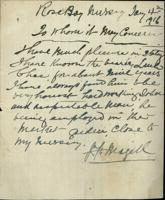 Rose Bay Nursery Jan 4th
1916
To whom it May Concern
I have Much pleasure in stating
I have known the bearer Luk
Chan for about nine years
I have always found him to be
very honest hard working Sober
and respectable man, he
being employed in the
Market garden Close to
my Nursery.
J. H. Magill